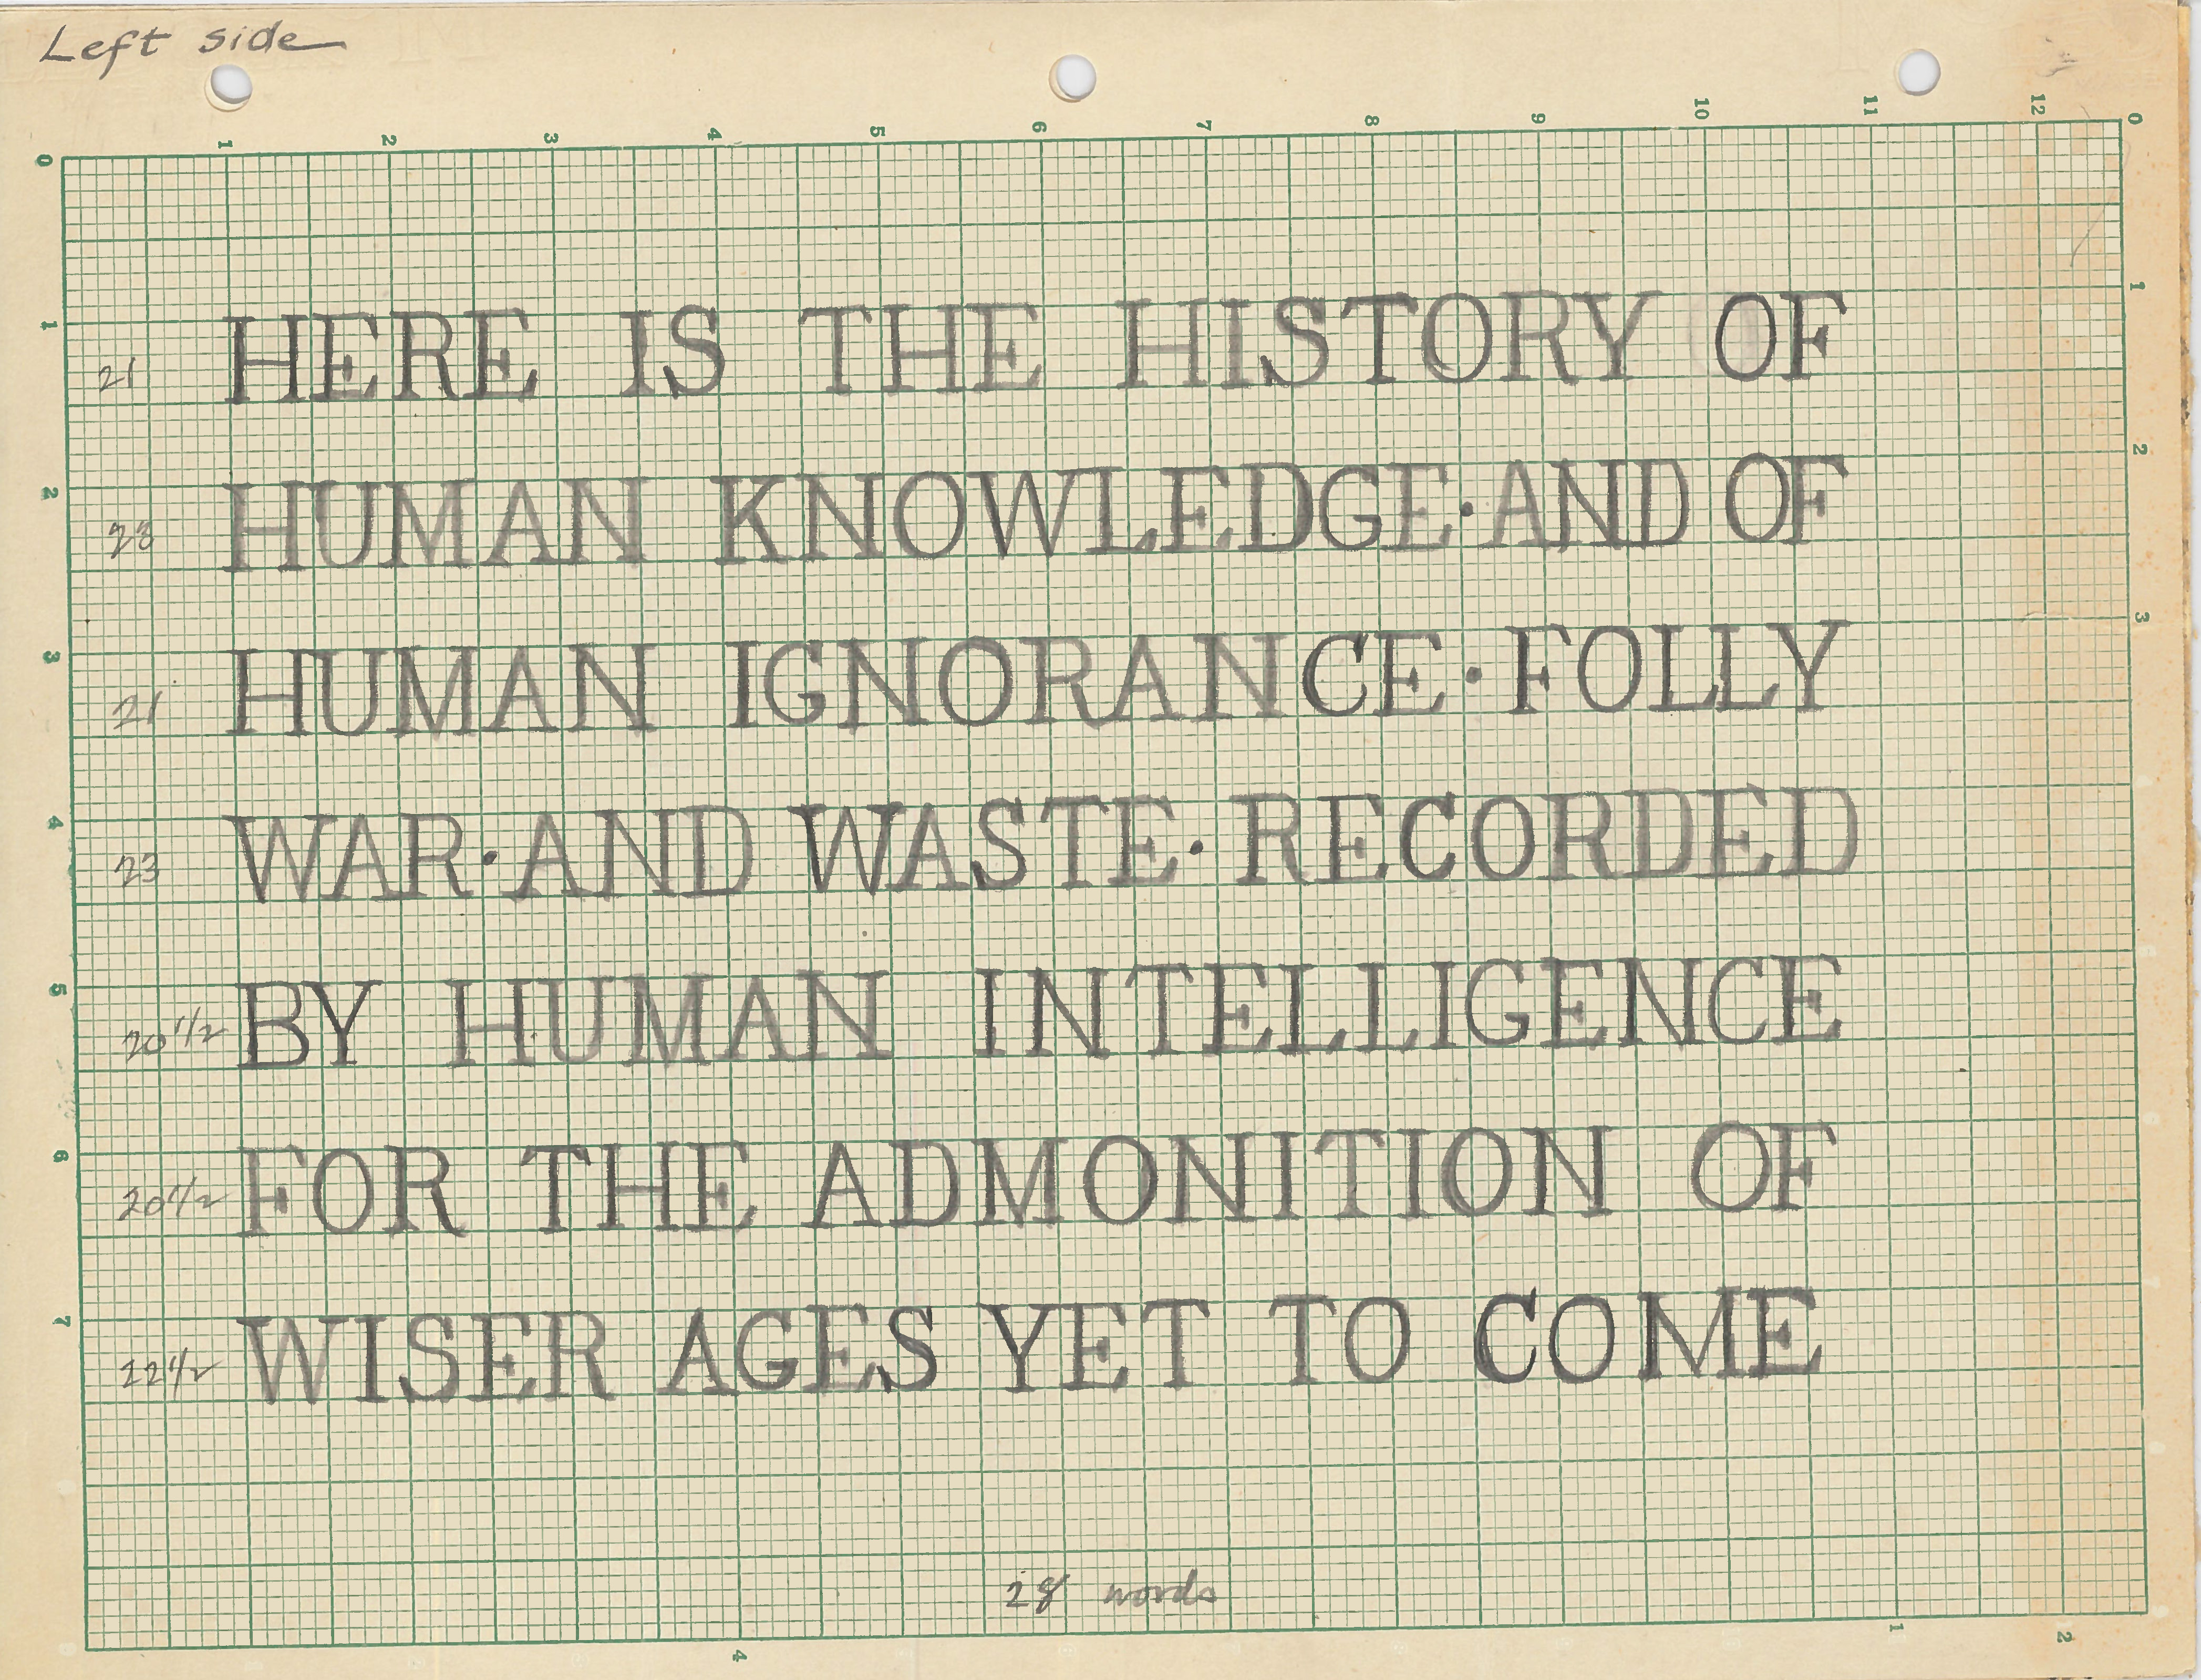 Left side
1 2 3 4 5 6 7 8 9 10 11 12 0
0
1
21 HERE IS THE HISTORY OF
1
2
23 HUMAN KNOWLEDGE·AND OF
2
3
21 HUMAN IGNORANCE·FOLLY
3
4
23 WAR·AND WASTE·RECORDED
5
20 1/2 BY HUMAN INTELLIGENCE
6
20 1/2 FOR THE ADMONITION OF
7
22 1/2 WISER AGES YET TO COME
28 words
4 1 2